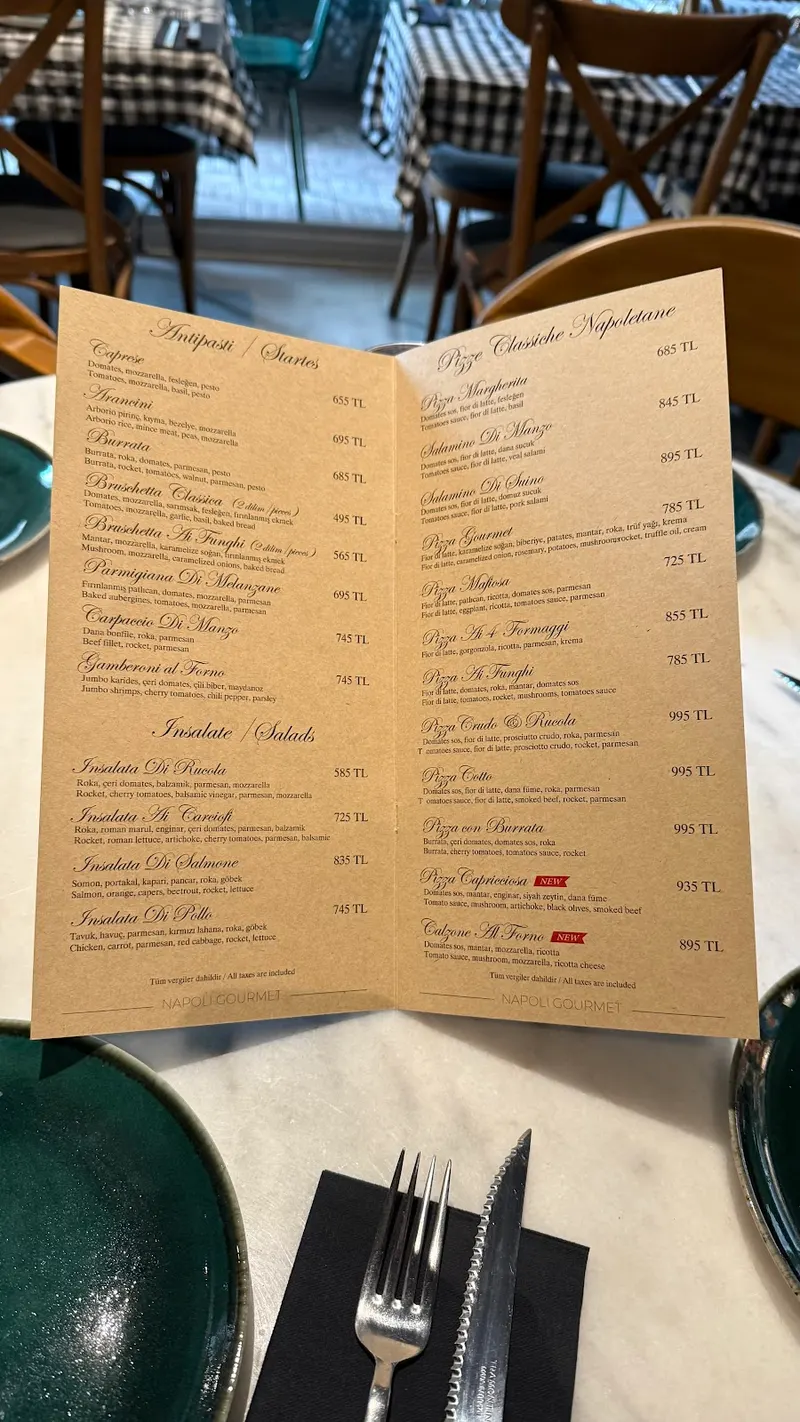 Antipasti / Startes
Caprese
Domates, mozzarella, fesleğen, pesto
Tomatoes, mozzarella, basil, pesto
655 TL
Arancini
Arborio pirinç, kıyma, bezelye, mozzarella
Arborio rice, mince meat, peas, mozzarella
695 TL
Burrata
Burrata, roka, domates, parmesan, pesto
Burrata, rocket, tomatoes, walnut, parmesan, pesto
685 TL
Bruschetta Classica (2 dilim / pieces)
Domates, mozzarella, sarımsak, fesleğen, fırınlanmış ekmek
Tomatoes, mozzarella, garlic, basil, baked bread
495 TL
Bruschetta Ai Funghi (2 dilim / pieces)
Mantar, mozzarella, karamelize soğan, fırınlanmış ekmek
Mushroom, mozzarella, caramelized onions, baked bread
565 TL
Parmigiana Di Melanzane
Fırınlanmış patlıcan, domates, mozzarella, parmesan
Baked aubergines, tomatoes, mozzarella, parmesan
695 TL
Carpaccio Di Manzo
Dana bonfile, roka, parmesan
Beef fillet, rocket, parmesan
745 TL
Gamberoni al Forno
Jumbo karides, çeri domates, çili biber, maydanoz
Jumbo shrimps, cherry tomatoes, chili pepper, parsley
745 TL
Insalate / Salads
Insalata Di Rucola
Roka, çeri domates, balzamik, parmesan, mozzarella
Rocket, cherry tomatoes, balsamic vinegar, parmesan, mozzarella
585 TL
Insalata Ai Carciofi
Roka, roman marul, enginar, çeri domates, parmesan, balzamik
Rocket, roman lettuce, artichoke, cherry tomatoes, parmesan, balsamic
725 TL
Insalata Di Salmone
Somon, portakal, kapari, pancar, roka, göbek
Salmon, orange, capers, beetrout, rocket, lettuce
835 TL
Insalata Di Pollo
Tavuk, havuç, parmesan, kırmızı lahana, roka, göbek
Chicken, carrot, parmesan, red cabbage, rocket, lettuce
745 TL
Tüm vergiler dahildir / All taxes are included
NAPOLI GOURMET
Pizze Classiche Napoletane
Pizza Margherita
Domates sos, fior di latte, fesleğen
Tomatoes sauce, fior di latte, basil
685 TL
Salamino Di Manzo
Domates sos, fior di latte, dana sucuk
Tomatoes sauce, fior di latte, veal salami
845 TL
Salamino Di Suino
Domates sos, fior di latte, domuz sucuk
Tomatoes sauce, fior di latte, pork salami
895 TL
Pizza Gourmet
Fior di latte, karamelize soğan, biberiye, patates, mantar, roka, trüf yağı, krema
Fior di latte, caramelized onion, rosemary, potatoes, mushroomrocket, truffle oil, cream
785 TL
Pizza Mafiosa
Fior di latte, patlıcan, ricotta, domates sos, parmesan
Fior di latte, eggplant, ricotta, tomatoes sauce, parmesan
725 TL
Pizza Ai 4 Formaggi
Fior di latte, gorgonzola, ricotta, parmesan, krema
855 TL
Pizza Ai Funghi
Fior di latte, domates, roka, mantar, domates sos
Fior di latte, tomatoes, rocket, mushrooms, tomatoes sauce
785 TL
Pizza Crudo & Rucola
Domates sos, fior di latte, prosciutto crudo, roka, parmesan
T omatoes sauce, fior di latte, prosciutto crudo, rocket, parmesan
995 TL
Pizza Cotto
Domates sos, fior di latte, dana füme, roka, parmesan
T omatoes sauce, fior di latte, smoked beef, rocket, parmesan
995 TL
Pizza con Burrata
Burrata, çeri domates, domates sos, roka
Burrata, cherry tomatoes, tomatoes sauce, rocket
995 TL
Pizza Capricciosa NEW
Domates sos, mantar, enginar, siyah zeytin, dana füme
Tomato sauce, mushroom, artichoke, black olives, smoked beef
935 TL
Calzone Al Forno NEW
Domates sos, mantar, mozzarella, ricotta
Tomato sauce, mushroom, mozzarella, ricotta cheese
895 TL
Tüm vergiler dahildir / All taxes are included
NAPOLI GOURMET